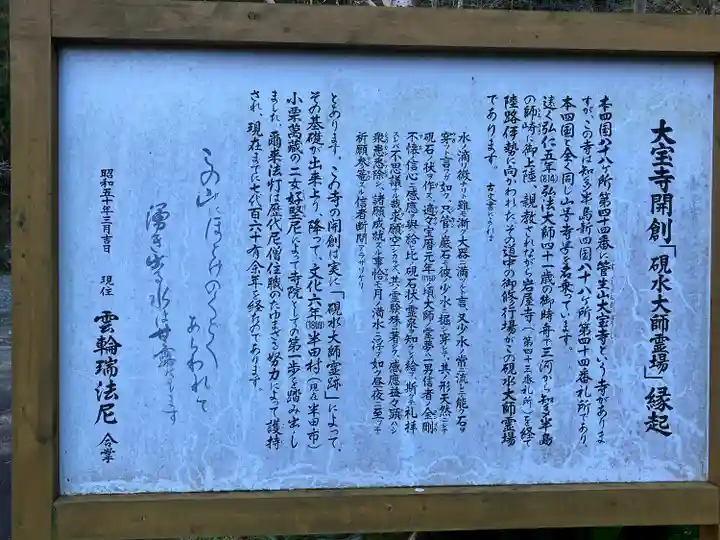 大宝寺開創「硯水大師霊場」縁起
本四国八十八ヶ所第四十四番に菅生山大宝寺という寺がありま
すが、この寺は知多半島新四国八十八ヶ所第四十四番札所であり
本四国と全く同じ山号寺号を名乗っています。
遠く弘仁五年(814)弘法大師四十一歳の御時舟で三河から知多半島
の師崎に御上陸、親教されながら岩屋寺(第四十三番札所)を経て
陸路伊勢に向かわれた、その道中の御修行場がこの硯水大師霊場
であります。
古文書によれば
水ノ滴微リト雖モ漸ク大器ニ満ツト言又少水ノ常ニ流レテ能ク石ヲ
穿ツト言フガ如ク只管ニ巌石ヲ彼ノ少水ニ堀リ穿シテ其ノ形天然ニシテ
硯石ノ状ヲ作ス適々宝暦元年(1751)頃大師ノ霊夢ヘ一男信者ノ金剛
不懐ノ信心ニ感應ヲ與ヘ給ヒ比ノ硯石状ノ霊泉ヲ知シメ給フ斯クテ礼拝
スレバ不思議ナル哉求願空シカラズ其ノ霊験殊ニ著シク感應益々顕ハシ
衆患悉除シ諸願成就スル事恰モ月ノ満水ニ浮ブガ如ク昼夜ニ至ッテ
祈願参篭スル信者断間アラザリケリ
とあります。この寺の開創は実に「硯水大師霊跡」によって、
その基礎が出来上り、降って、文化六年(1809)半田村(現在半田市)
小栗萬蔵の二女好堅尼によって寺院としての第一歩を踏み出し
ました。爾来法灯は歴代尼僧住職のたゆまざる努力によって護持
され、現在まで七代百六十有余年を経たのであります。
この山にほとけのくどく
あらわれて
湧き出る水は甘露なります
昭和五十年三月吉日
現住 雲輪瑞法尼 合掌